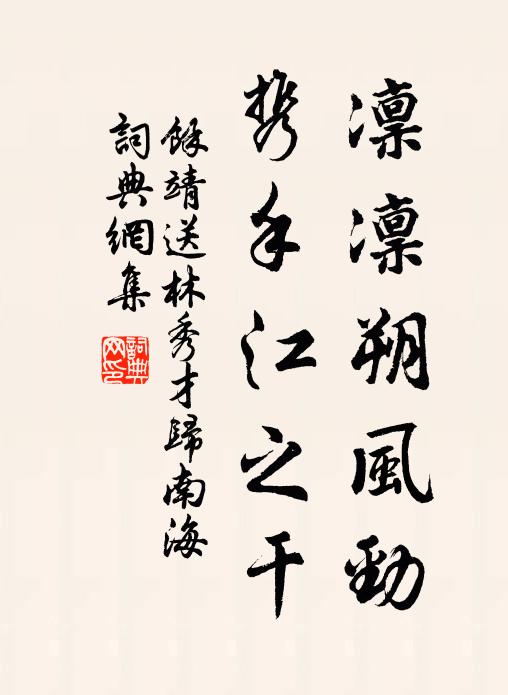 凛凛朔風勁
携手江之干
餘靖送林秀才歸南海
詞典網集
詞典
网印